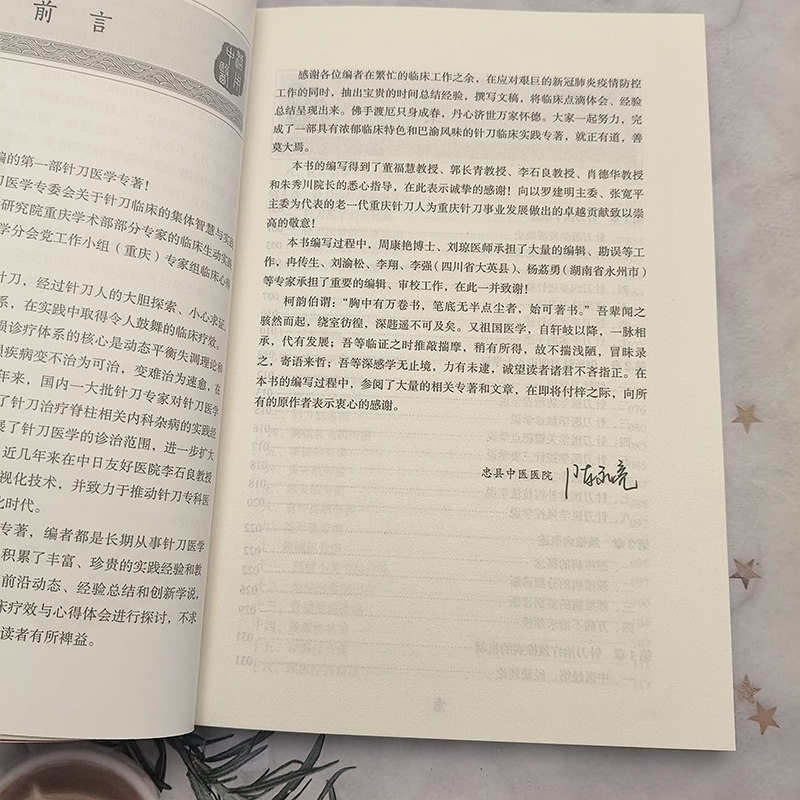 前言
编的第一部针刀医学专著！
刀医学专委会关于针刀临床的集体智慧与实践
研究院重庆学术部部分专家的临床生动实践
学分会党工作小组（重庆）专家组临床心得
针刀，经过针刀人的大胆探索、小心求证，
系，在实践中取得令人鼓舞的临床疗效。
损诊疗体系的核心是动态平衡失调理论和
损疾病变不治为可治，变难治为速愈，在
年来，国内一大批针刀专家对针刀医学
了针刀治疗脊柱相关内科杂病的实践经
展了针刀医学的诊治范围，进一步扩大
近几年来在中日友好医院李石良教授
视化技术，并致力于推动针刀专科医
化时代。
专著，编者都是长期从事针刀医学
积累了丰富、珍贵的实践经验和教
前沿动态、经验总结和创新学说，
床疗效与心得体会进行探讨，不求
读者有所裨益。
感谢各位编者在繁忙的临床工作之余，在应对艰巨的新冠肺炎疫情防控
工作的同时，抽出宝贵的时间总结经验，撰写文稿，将临床点滴体会、经验
总结呈现出来。佛手渡厄只身成春，丹心济世万家怀德。大家一起努力，完
成了一部具有浓郁临床特色和巴渝风味的针刀临床实践专著，就正有道，善
莫大焉。
本书的编写得到了董福慧教授、郭长青教授、李石良教授、肖德华教授
和朱秀川院长的悉心指导，在此表示诚挚的感谢！向以罗建明主委、张宽平
主委为代表的老一代重庆针刀人为重庆针刀事业发展做出的卓越贡献致以崇
高的敬意！
本书编写过程中，周康艳博士、刘琼医师承担了大量的编辑、勘误等工
作，冉传生、刘渝松、李翔、李强（四川省大英县）、杨荔勇（湖南省永州市）
等专家承担了重要的编辑、审校工作，在此一并致谢！
柯韵伯谓：“胸中有万卷书，笔底无半点尘者，始可著书。”吾辈闻之
骇然而起，绕室彷徨，深赹遥不可及矣。又祖国医学，自轩岐以降，一脉相
承，代有发展；吾等临证之时推敲揣摩，稍有所得，故不揣浅陋，冒昧录
之，寄语来哲；吾等深感学无止境，力有未逮，诚望读者诸君不吝指正。在
本书的编写过程中，参阅了大量的相关专著和文章，在即将付梓之际，向所
有的原作者表示衷心的感谢。
忠县中医医院